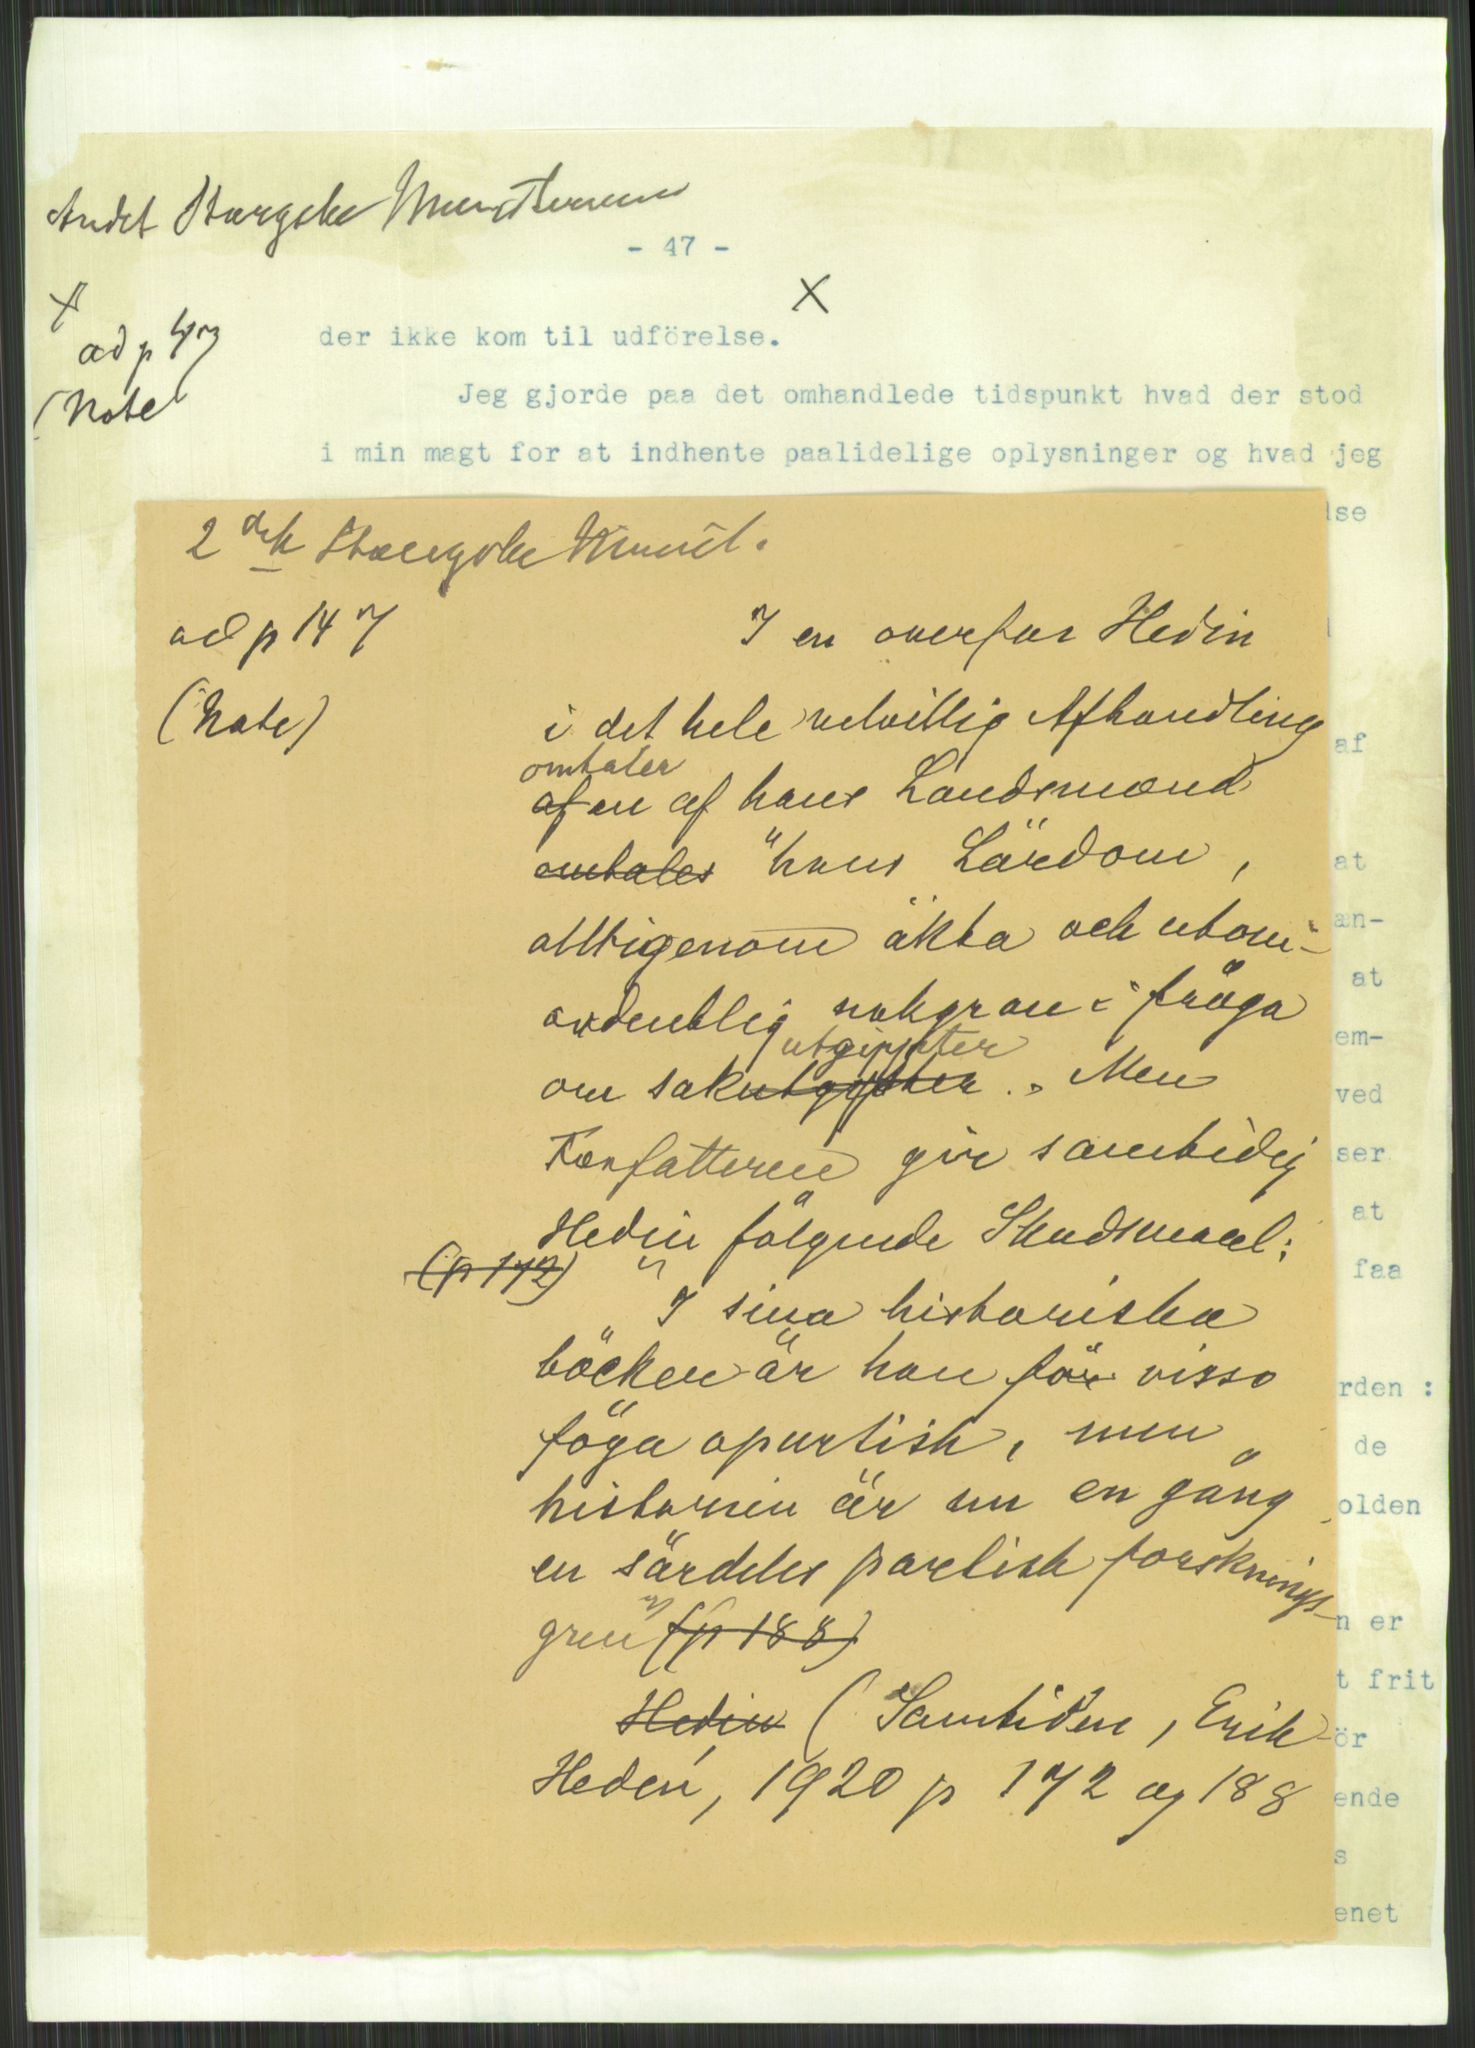 Andet Stangske Ministerium
- 47 -
X
ad p 47
(Note
X
der ikke kom til udförelse.
Jeg gjorde paa det omhandlede tidspunkt hvad der stod
i min magt for at indhente paalidelige oplysninger og hvad jeg
lse
2 det Stangske Minist.
ad p 147
(Note)
I en overfor Hedin
i det hele velvillig Afhandling
omtaler
af en af hans Landsmænd
omtales "hans Lärdom,
alltigenom äkta och utom-
ordentlig nokgran i fråga
utgifter
om sakutgifter. Men
Forfatteren gir samtidig
Hedin fölgende Skudsmaal:
(p 172)
"I sina historiska
böcker är han för visso
föga opartisk, men
historien är nu en gång
en särdeles partisk forsknings-
gren" (p 188)
Hedin (Samtiden, Erik
Hedén, 1920 p 172 og 188
af
at
æn-
at
em-
ved
ser
at
faa
rden :
de
olden
n er
t frit
ör
ende
s
enet